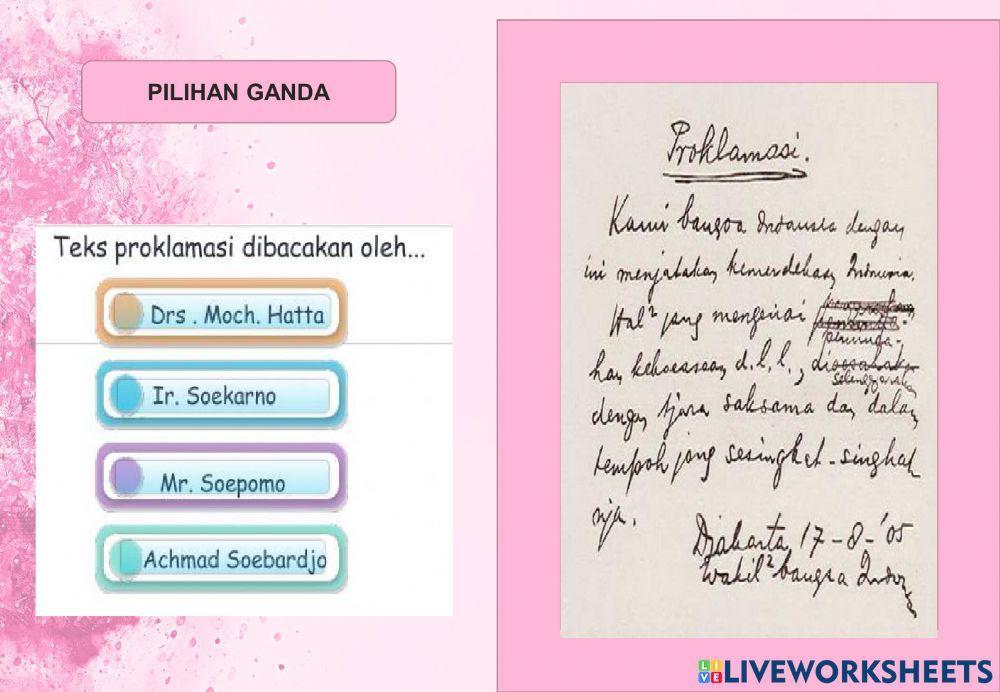 PILIHAN GANDA
Teks proklamasi dibacakan oleh...
Drs . Moch. Hatta
Ir. Soekarno
Mr. Soepomo
Achmad Soebardjo
Proklamasi.
Kami bangsa Indonesia dengan
ini menjatakan kemerdekaan Indonesia.
Hal² jang mengenai
peminda-
han kekoeasaan d.l.l.,
diselenggarakan
dengan tjara saksama dan dalam
tempoh jang sesingkat-singkat
nja.
Djakarta, 17-8-'05
Wakil² bangsa Indon
LIVEWORKSHEETS